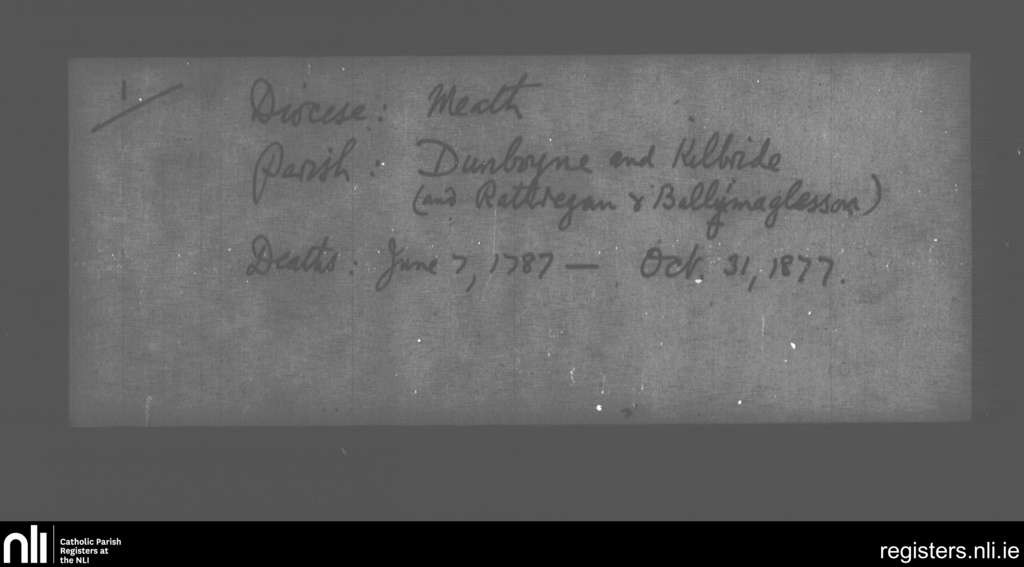 1/
Diocese: Meath
Parish: Dunboyne and Kilbride
(and Rathregan & Ballymaglesson)
Deaths: June 7, 1787 — Oct. 31, 1877.
nli
Catholic Parish
Registers at
the NLI
registers.nli.ie